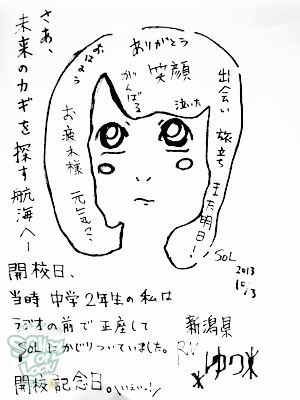 さあ、
未来のカギを探す航海へー
おはよう
ありがとう
がんばる
笑顔
泣いた
出会い
旅立ち
また明日！
お疲れ様
元気？
SOL
2013
10/3
開校日、
当時 中学2年生の私は
ラジオの前で正座して
SOLにかじりついていました。
開校記念日。いぇいっ！
新潟県
R.N
*ゆり*